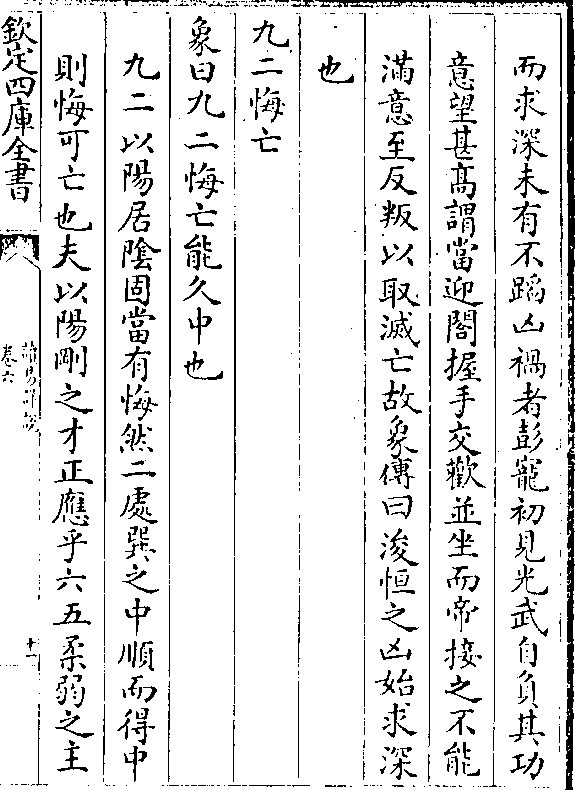 而求深未有不蹈凶禍者彭寵初見光武自負其功
意望甚髙謂當迎閤握手交歡並坐而帝接之不能
滿意至反叛以取滅亡故象傳曰浚恒之凶始求深
也
九二悔亡
象曰九二悔亡能久中也
九二以陽居陰固當有悔然二處巽之中順而得中
則悔可亡也夫以陽剛之才正應乎六五柔弱之主
欽定四庫全書
讀易詳說
卷六
十一